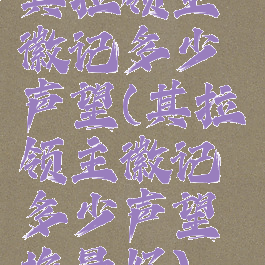 其拉领主
徽记多少
声望(其拉
领主徽记
多少声望
换最好)